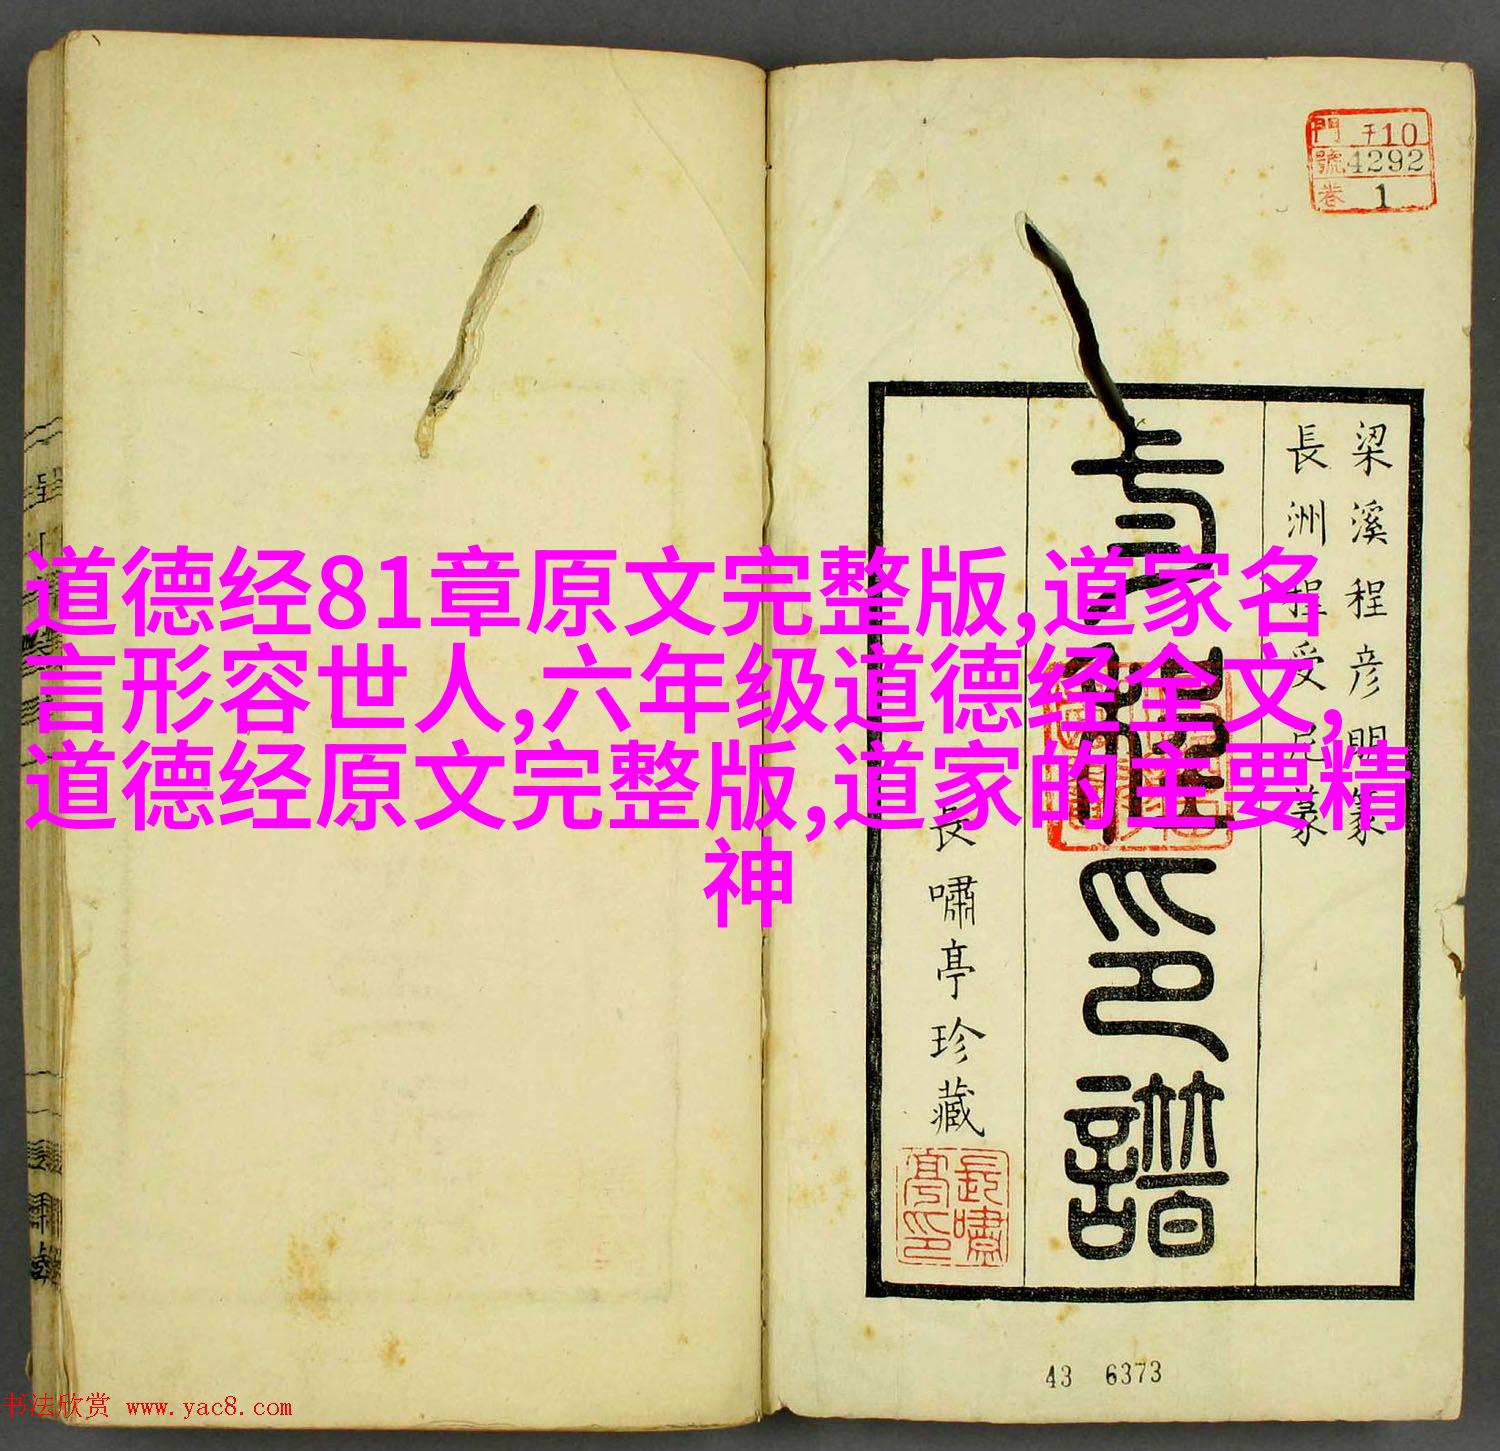 門 于10
號 4292
卷 1
梁溪程彦明篆
長洲程受尼篆
印譜
長嘯亭珍藏
長嘯亭印
道德经81章原文完整版,道家名
言形容世人,六年级道德经全文,
道德经原文完整版,道家的主要精
神
43 6373
书法欣赏 www.yac8.com